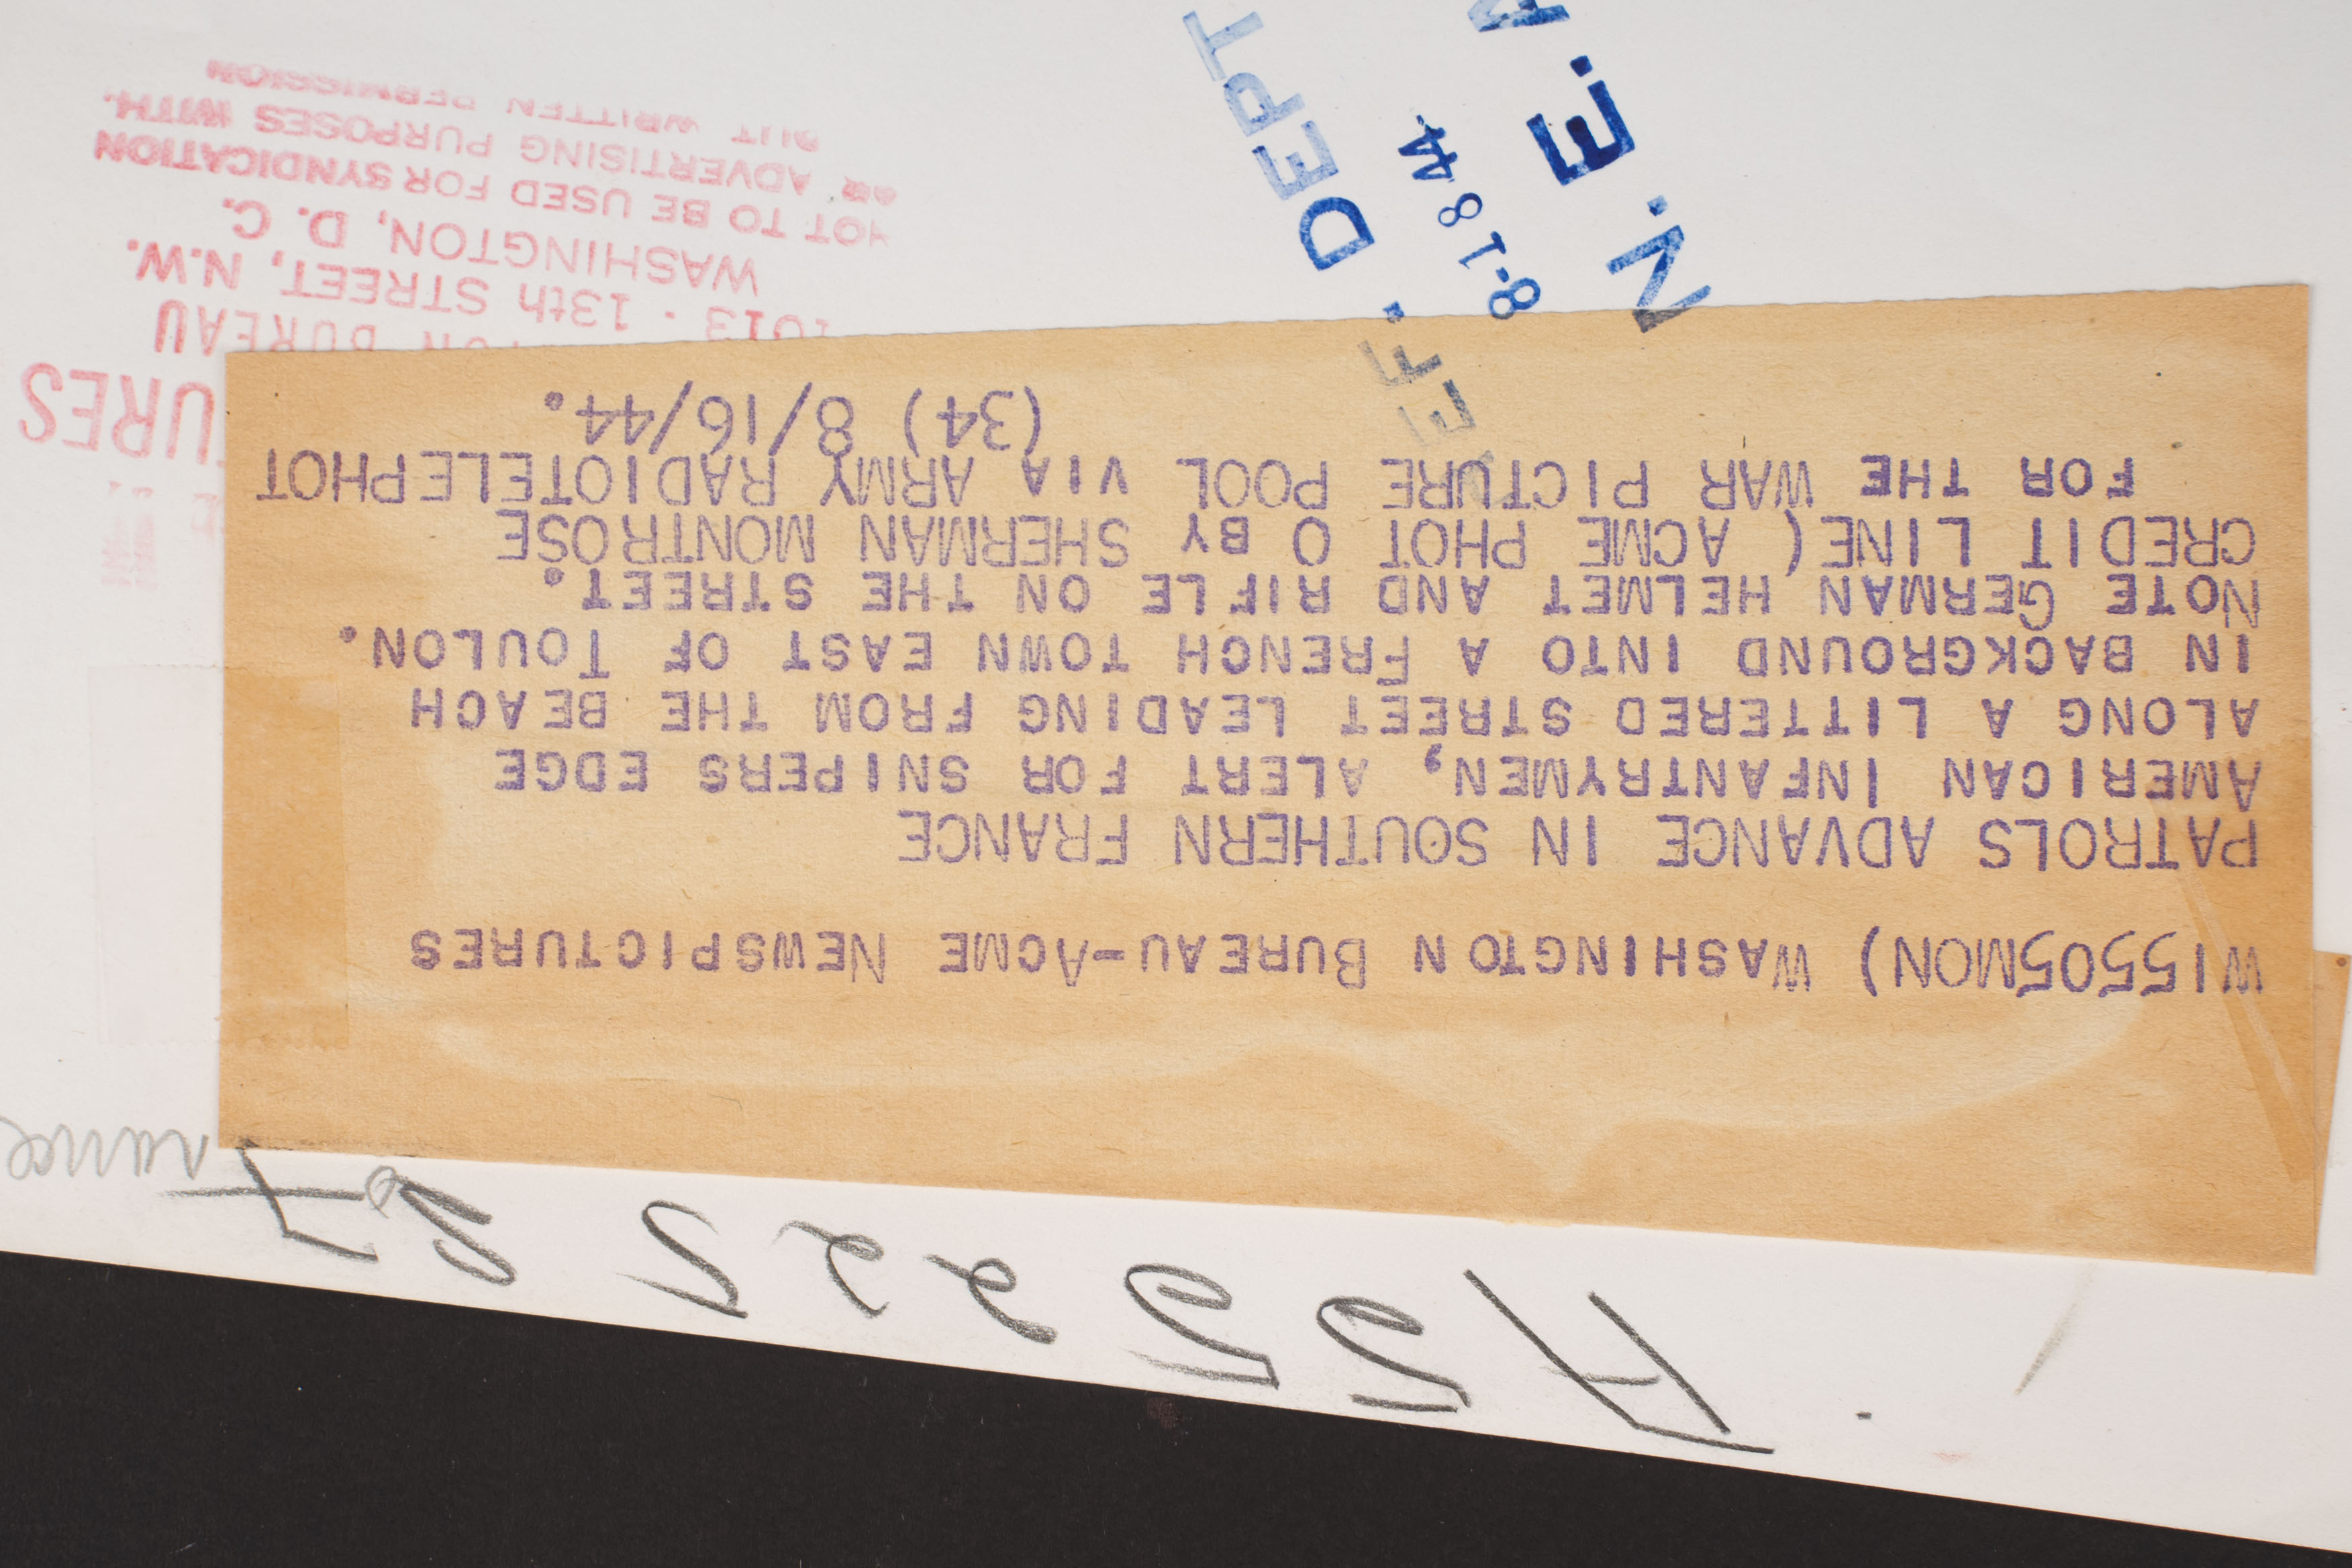 W15505MON) WASHINGTON BUREAU-ACME NEWSPICTURES
PATROLS ADVANCE IN SOUTHERN FRANCE
AMERICAN INFANTRYMEN, ALERT FOR SNIPERS EDGE
ALONG A LITTERED STREET LEADING FROM THE BEACH
IN BACKGROUND INTO A FRENCH TOWN EAST OF TOULON.
NOTE GERMAN HELMET AND RIFLE ON THE STREET.
CREDIT LINE( ACME PHOT O BY SHERMAN MONTROSE
FOR THE WAR PICTURE POOL VIA ARMY RADIOTELEPHOT
(34) 8/16/44.
URES
BUREAU
1013 - 13th STREET, N.W.
WASHINGTON, D. C.
NOT TO BE USED FOR SYNDICATION
OR ADVERTISING PURPOSES WITH-
OUT WRITTEN PERMISSION
N. E. A
8-18 44
EF. DEPT